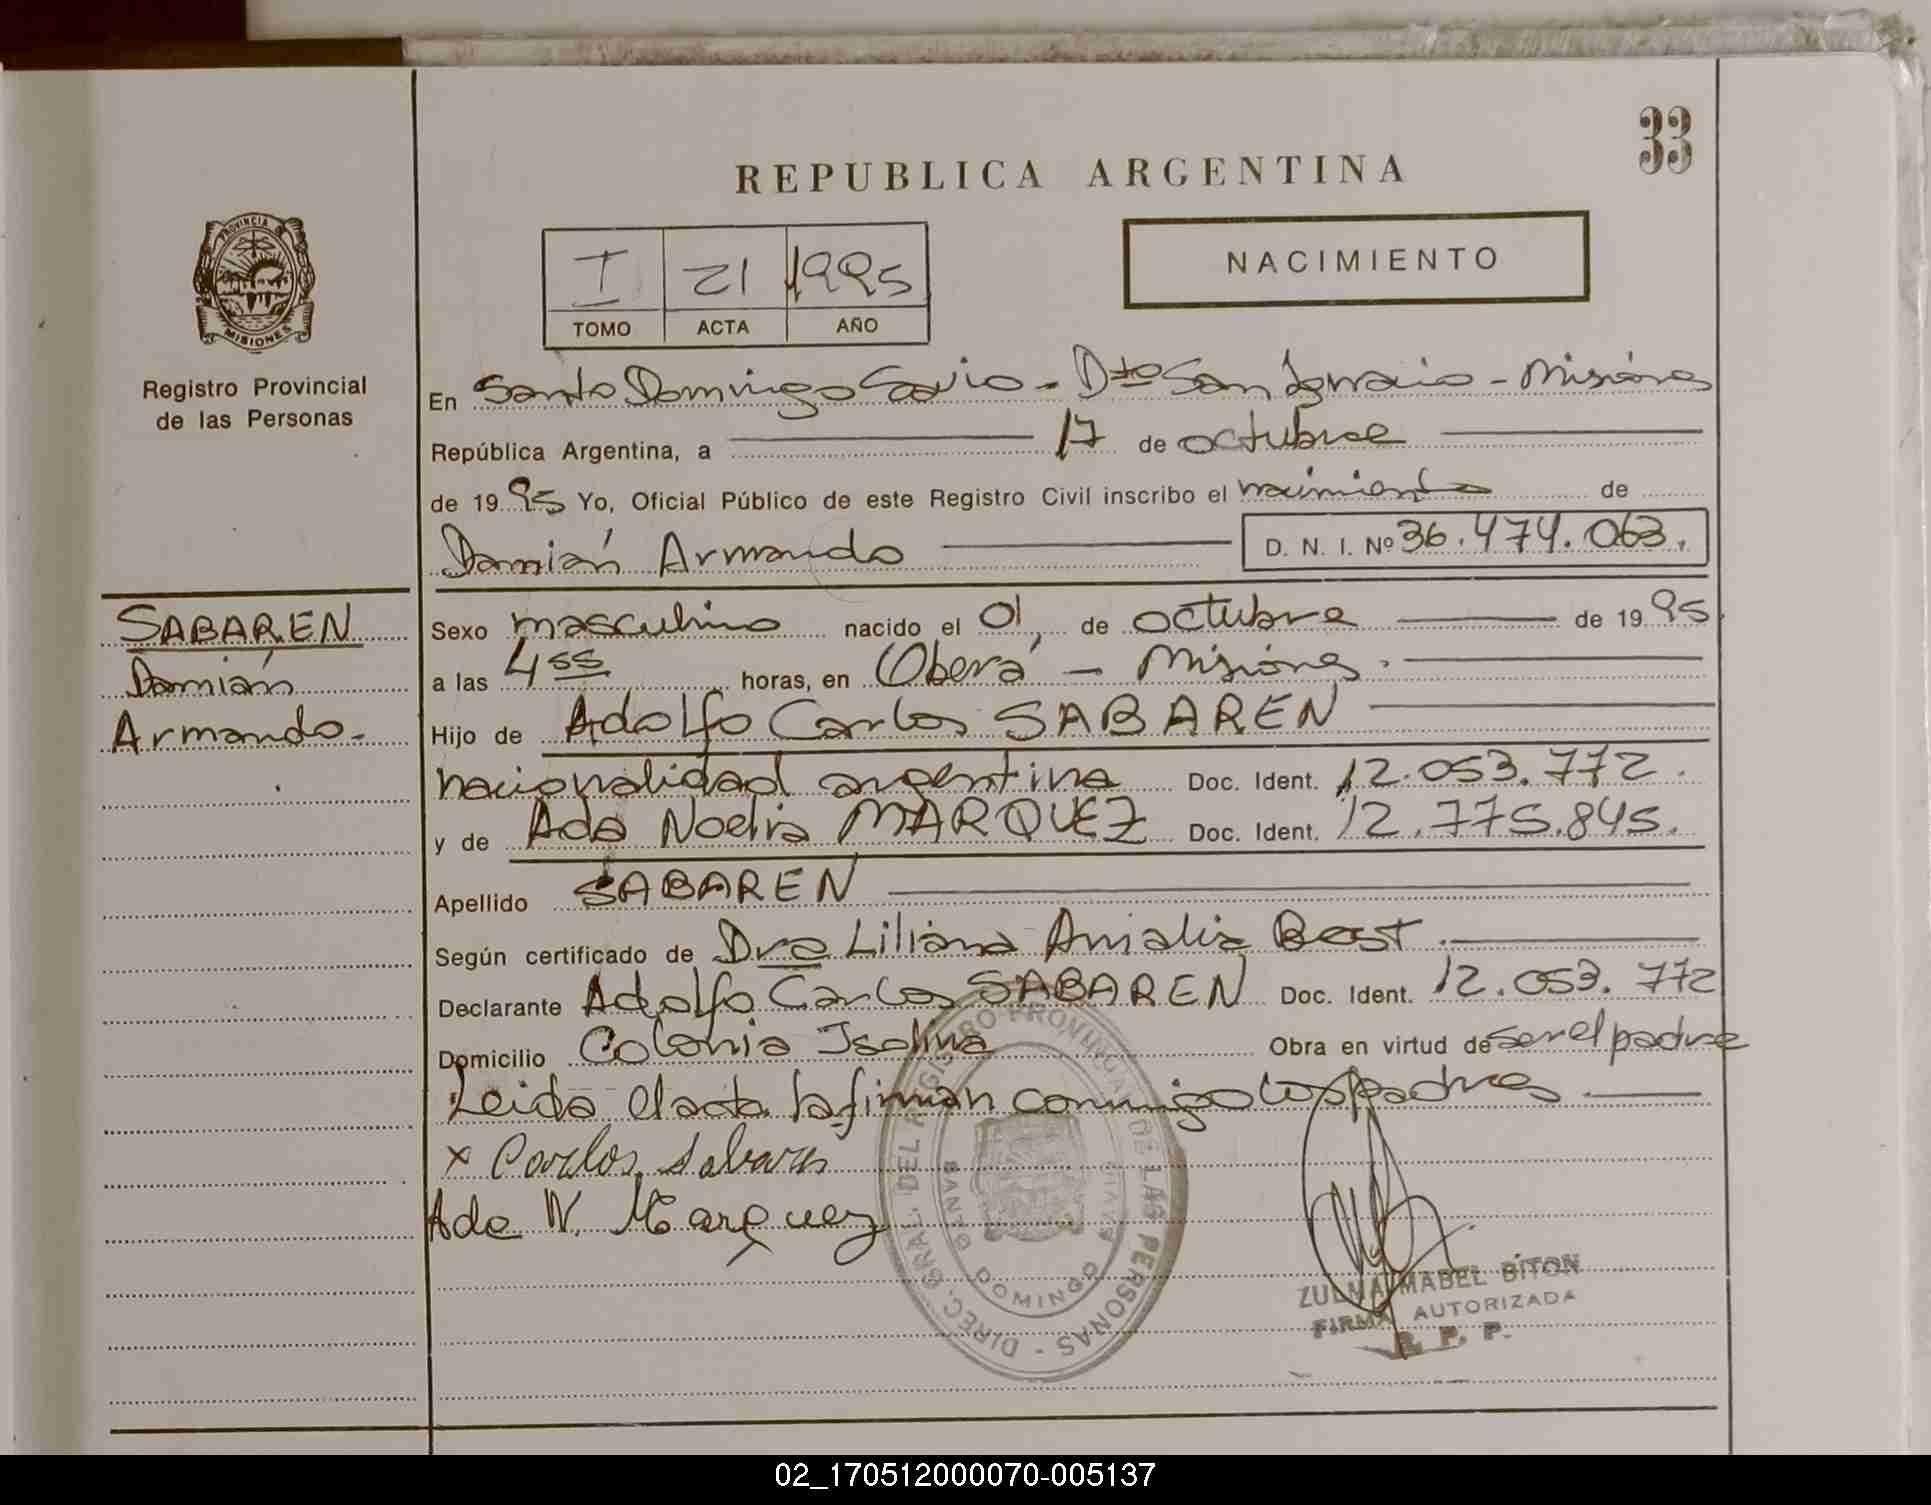 33
REPUBLICA ARGENTINA
PROVINCIA DE
MISIONES
I 21 1995
TOMO ACTA AÑO
NACIMIENTO
Registro Provincial
de las Personas
En Santo Domingo Savio - Dto San Ignacio - Misiones
República Argentina, a 17 de octubre
de 19 95 Yo, Oficial Público de este Registro Civil inscribo el nacimiento de
Damián Armando D. N. I. Nº 36.474.063.
SABAREN
Damián
Armando.-
Sexo masculino nacido el 01 de octubre de 19 95
a las 4 55 horas, en Oberá - Misiones.
Hijo de Adolfo Carlos SABAREN
nacionalidad argentina Doc. Ident. 12.053.772.
y de Ada Noelia MARQUEZ Doc. Ident. 12.775.845.
Apellido SABAREN
Según certificado de Dra Liliana Amalia Best.
Declarante Adolfo Carlos SABAREN Doc. Ident. 12.053.772
Domicilio Colonia Isolina Obra en virtud de ser el padre
Leida el acta la firman conmigo los padres
x Carlos Sabaren
Ada N. Marquez
DIREC. GRAL. DEL REGISTRO PROVINCIAL DE LAS PERSONAS -
SANTO DOMINGO SAVIO
ZULMA MABEL BITON
FIRMA AUTORIZADA
R. P. P.
02_170512000070-005137